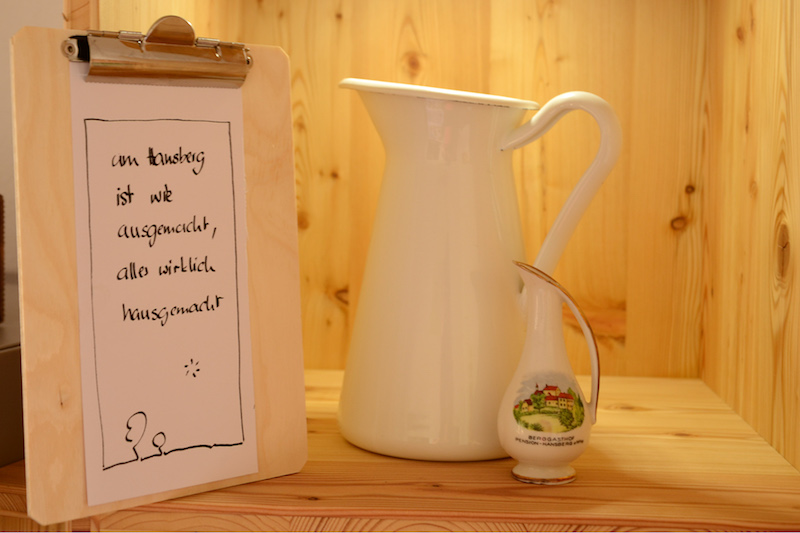 am Hansberg
ist wie
ausgemacht,
alles wirklich
hausgemacht
BERGGASTHOF
PENSION-HANSBERG